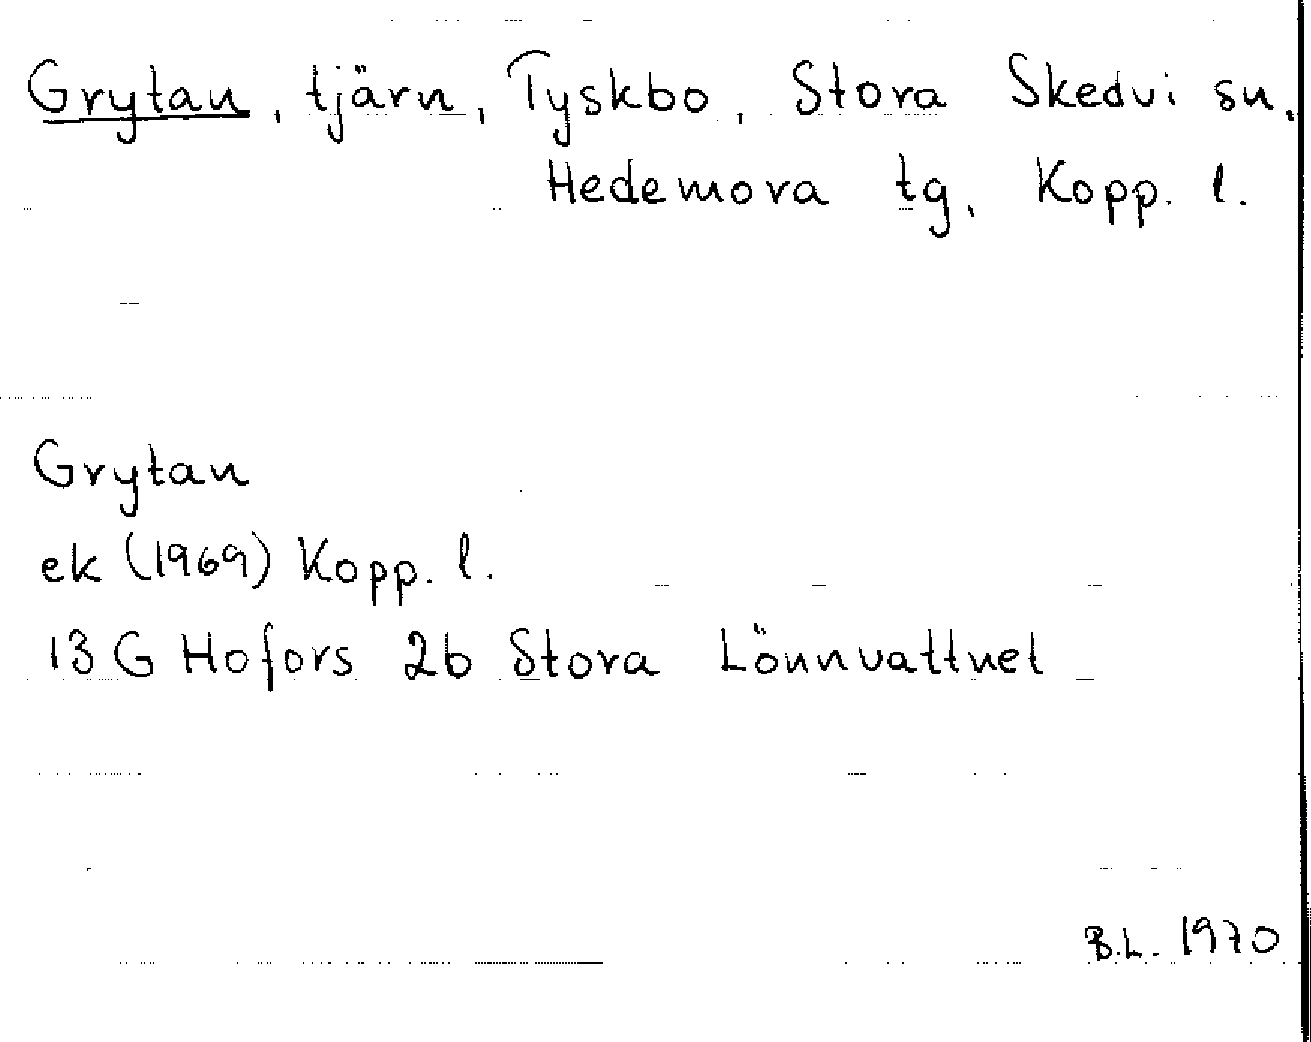 Grytan, tjärn, Tyskbo, Stora Skedvi sn,
Hedemora tg, Kopp. l.
Grytan
ek (1969) Kopp. l.
13 G Hofors 2b Stora Lönnvattnet
B.L. 1970